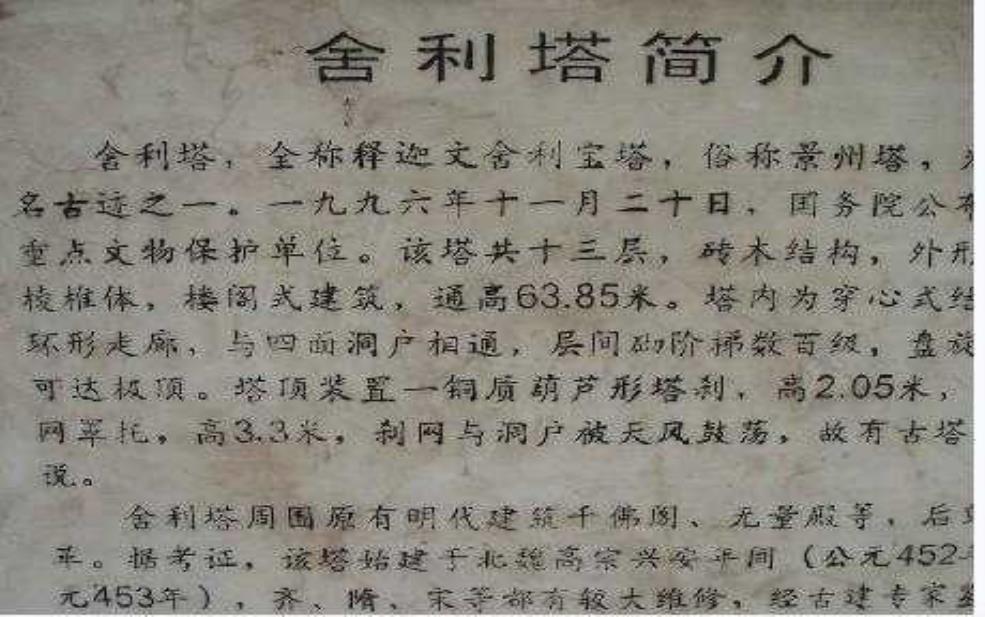 舍利塔简介
舍利�，全称释迦文舍利宝塔，俗称景州塔，
名古迹之一。一九九六年十一月二十日，国务院公布
重点文物保护单位。该塔共十三层，砖木结构，外形
棱椎体，楼阁式建筑，通高63.85米。塔内为穿心式结
环形走廊，与四面洞户相通，层间砌阶梯数百级，盘旋
可达极顶。塔顶装置一铜质葫芦形塔刹，高2.05米，
网罩托，高3.3米，刹网与洞户被天风鼓荡，故有古塔
说。
舍利塔周围原有明代建筑千佛阁、无量殿等，后
年。据考证，该塔始建于北魏高宗兴安年间（公元452年
元453年），齐、隋、宋等都有较大维修，经古建专家